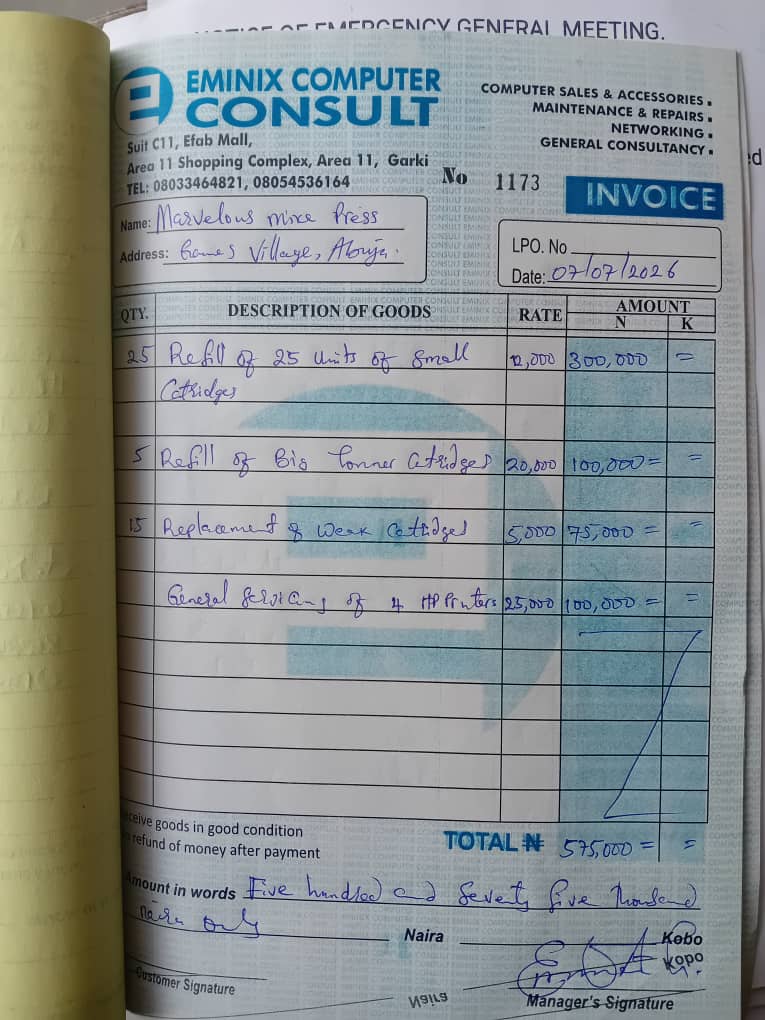 NOTICE OF EMERGENCY GENERAL MEETING.
EMINIX COMPUTER
CONSULT
Suit C11, Efab Mall,
Area 11 Shopping Complex, Area 11, Garki
TEL: 08033464821, 08054536164
COMPUTER SALES & ACCESSORIES
MAINTENANCE & REPAIRS
NETWORKING
GENERAL CONSULTANCY
No 1173
INVOICE
Name: Marvelous mike Press
Address: Games Village, Abuja.
LPO. No
Date: 07/07/2026
QTY. DESCRIPTION OF GOODS RATE AMOUNT
N K
25 Refill of 25 units of Small 12,000 300,000 =
Catridges
5 Refill of Big Tonner Catridges 20,000 100,000 = =
15 Replacement of weak Catridges 5,000 75,000 = =
General Servicing of 4 HP Printers 25,000 100,000 = =
ceive goods in good condition
refund of money after payment
TOTAL ₦ 575,000 = =
Amount in words Five hundred and Seventy five Thousand
naira only
Naira Kobo
Kopo
Customer Signature
Naira
Manager's Signature